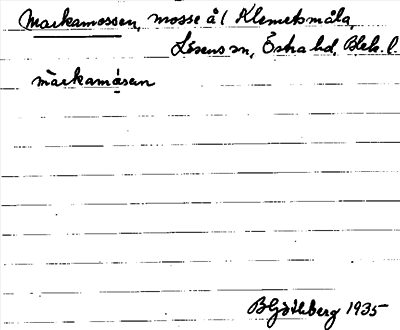 Markamossen, mosse å l Klemetsmåla,
Lösens sn, Östra hd, Blek. l.
màrkamå̀sɛn
B Göthberg 1935